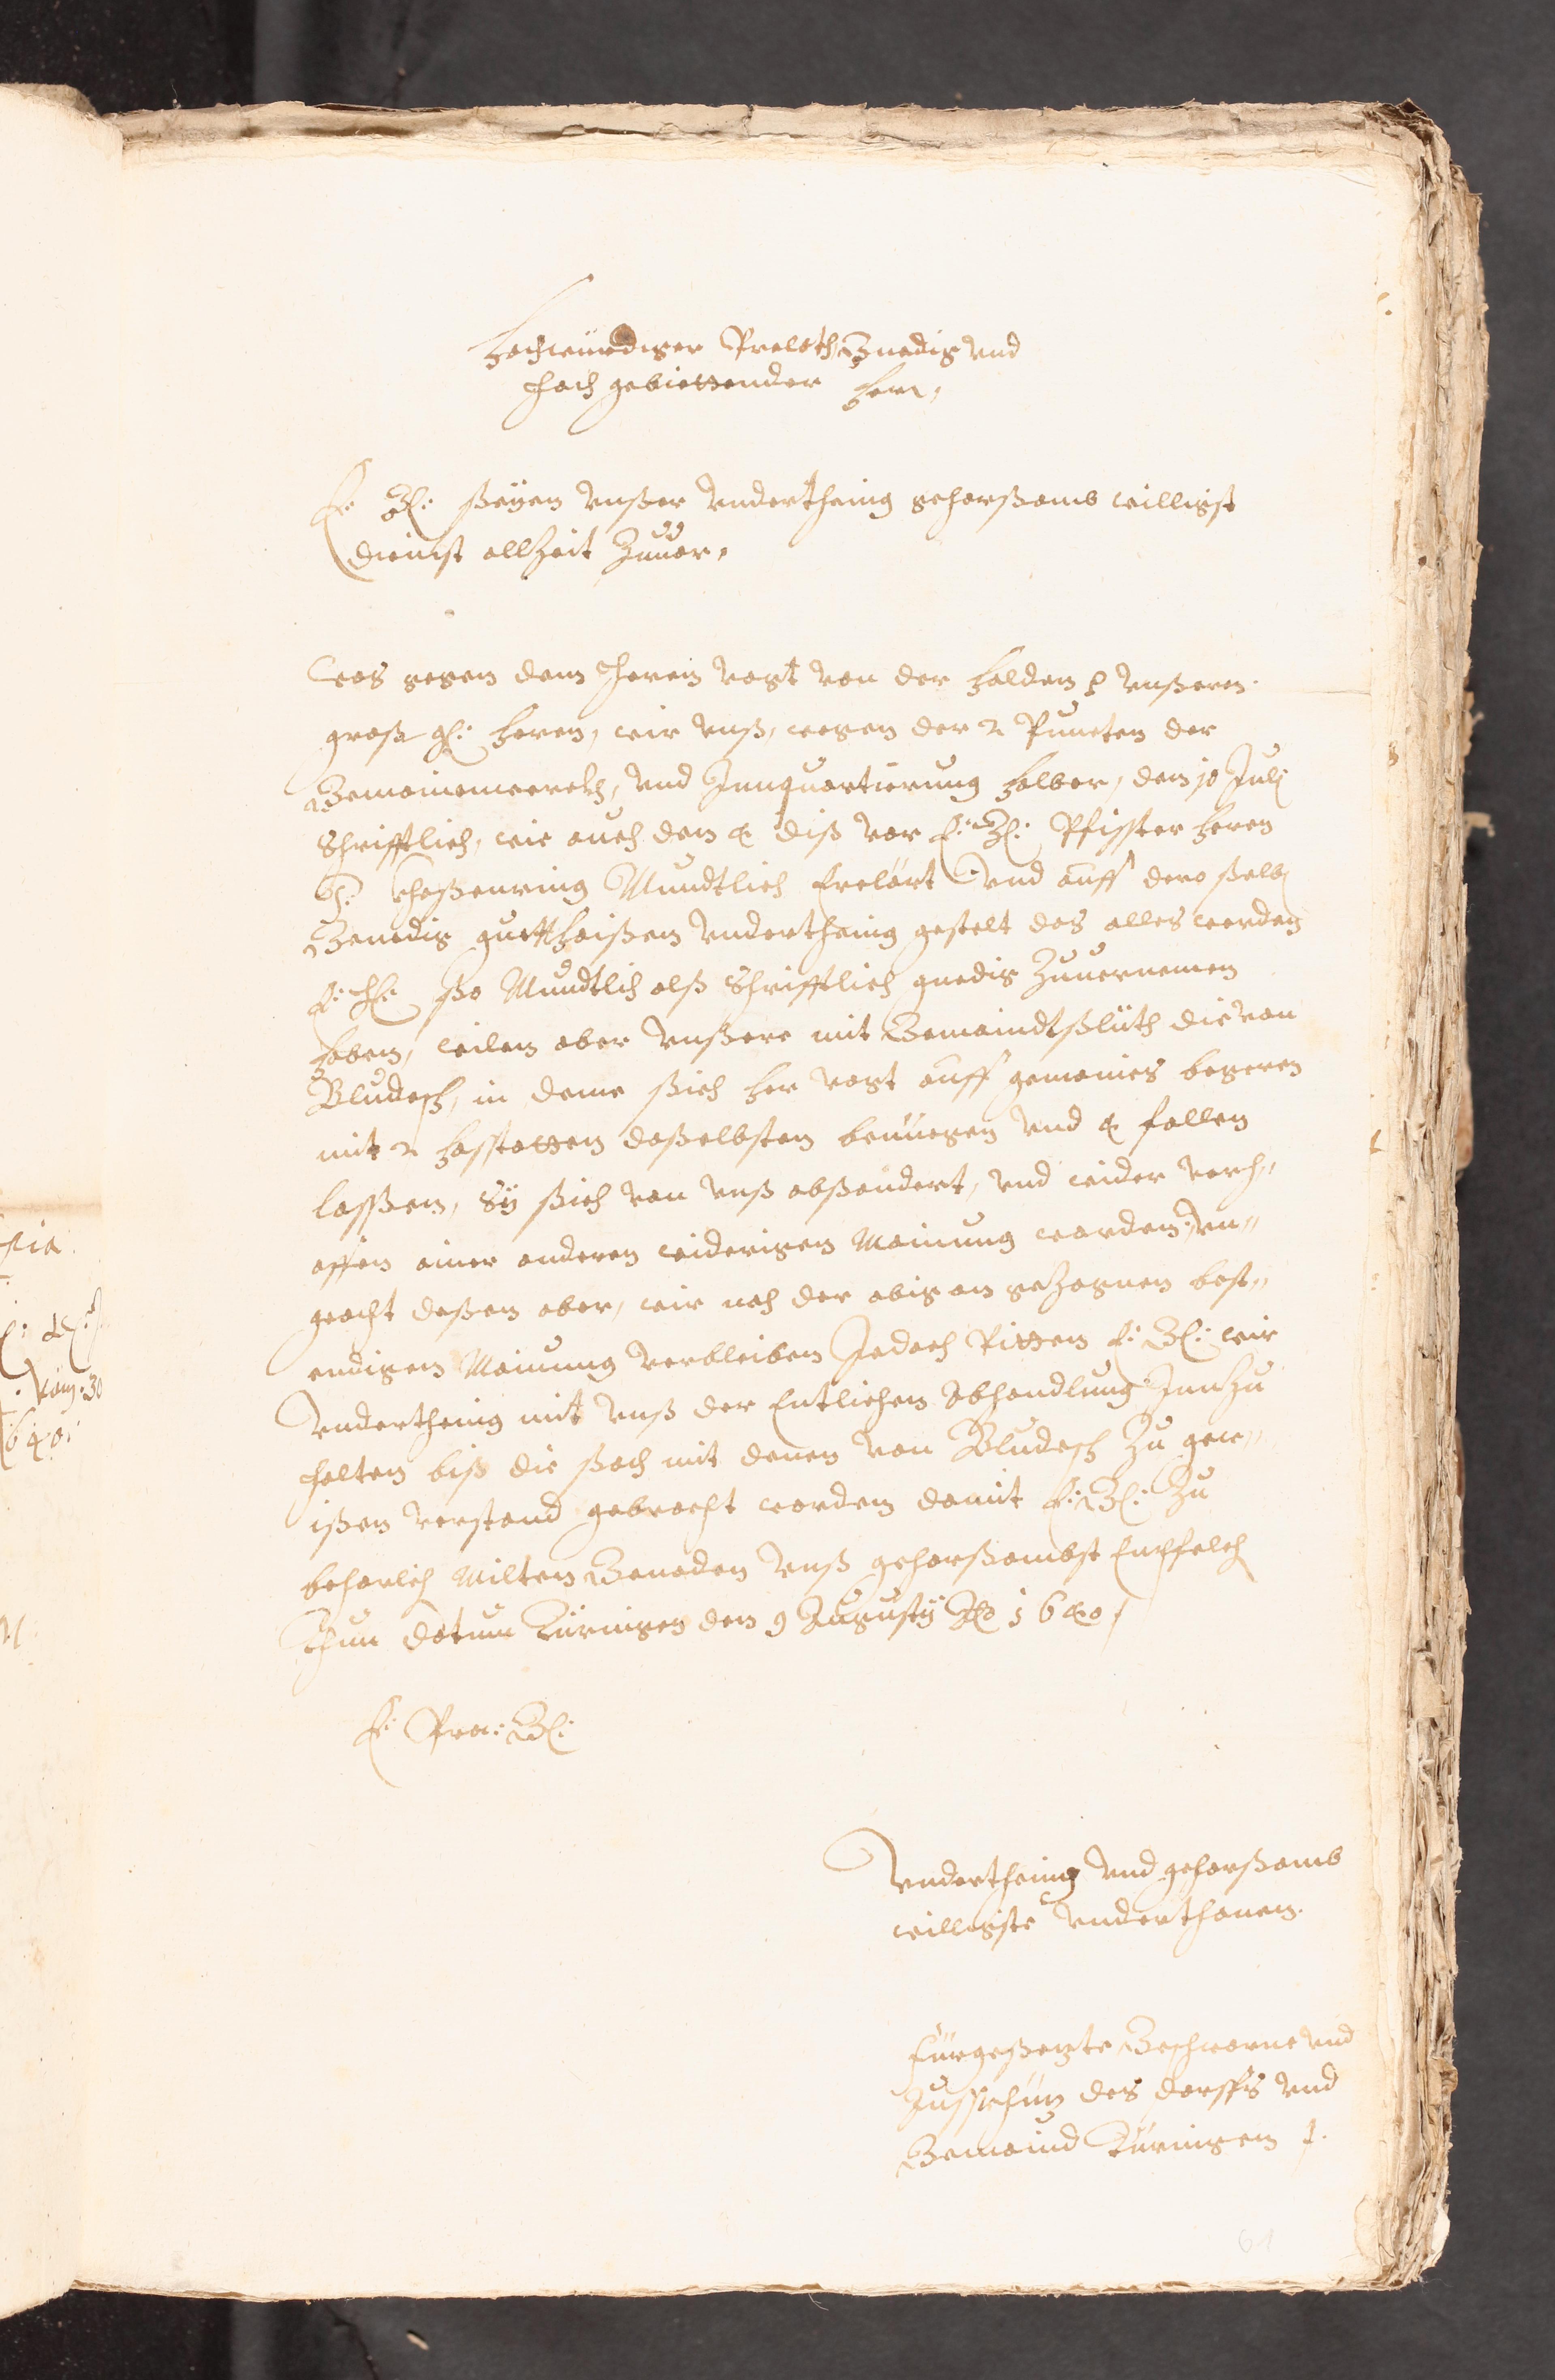 Hochwürdiger Prelath Gnedig vnd
hoch gebiettender Herr,
E: Gl: seyen vnßer vnderthenig gehorßamb willigst
dienst allzeit Zuuor,
Was gegen dem Heren vogt von der Halden p vnßeren
groß gl: Heren, wir vnß, wegen der 2 Puncten der
Gemeinswerckh, vnd Innquartierung halber, den 10 Julj
Schrifftlich, wie auch den 4 diß vor E: Gl: Pfister Heren
Mundtlich Erclärt vnd auff dero ßelbj
Genedig gutthaißen vnderthenig gestelt das alles werden
E: Gl: ßo Mundtlich alß Schrifftlich gnedig Zuuernemen
haben, weilen aber vnßere mit Gemaindtßlüth die von
Bludesch, in deme ßich Her vogt auff gemeines begeren
mit 2 Hoffstetten daßelbsten benüegen vnd 4 fallen
laßßen, Sy ßich von vnß abßondert, vnd wider verh„
offen einer anderen widerigen Mainung worden, vn„
geacht deßen aber, wir noch der obig an gezognen best„
endigen Mainung verbleiben Jedoch Pitten E: Gl: wir
vnderthenig mit vnß der Entlichen Abhandlung Innzu
halten biß die ßach mit denen von Bludesch Zu gew„
ißen verstand gebracht worden damit E: Gl: Zu
beharlich Milten Genaden vnß gehorßambst Empfelch
Thun datum Türingen den 9 Augusty Ao 1640
E: Pra: Gl:
Vnderthenig vnd gehorßamb
willigste vnderthonen.
Fürgeßetzte Geschworne vnd
des dorffs vnd
Gemaind Türingen
61